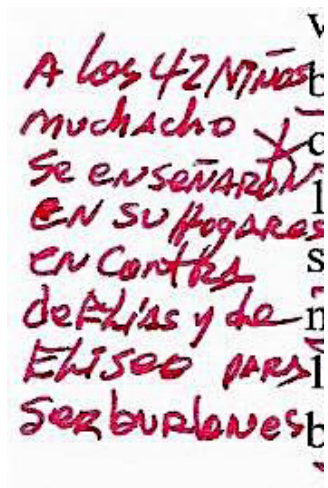 A los 42 Niños
muchacho
Se enseñaron
en su Hogares
en contra
de Elías y de
Eliseo para
Ser burlones